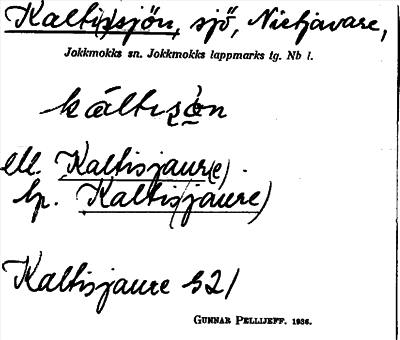 Kalti(s)sjön, sjö, Nietjavare,
Jokkmokks sn. Jokkmokks lappmarks tg. Nb l.
ell. Kaltisjaur(e).
lp. Kaltis(jaure)
Kaltisjaure S21
GUNNAR PELLIJEFF. 1936.